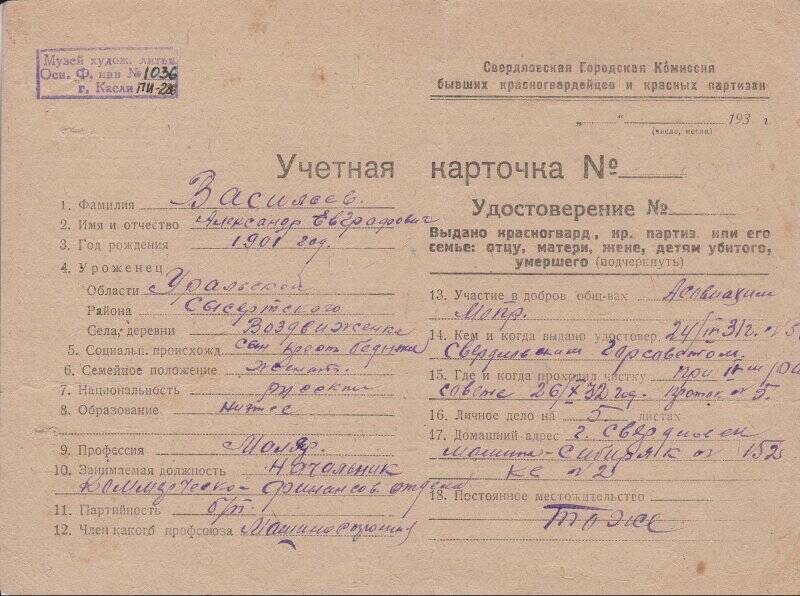 Музей худож. литья
Осн. Ф. инв № 1036
г. Касли ПИ-226
Свердловская Городская Комиссия
бывших красногвардейцев и красных партизан
„ “ 193 г
(число, месяц)
Учетная карточка №
Удостоверение №
Выдано красногвард., кр. партиз. или его
семье: отцу, матери, жене, детям убитого,
умершего (подчеркнуть)
1. Фамилия Василоев.
2. Имя и отчество Александр Евграфович
3. Год рождения 1901 год.
4. Уроженец
Области Уральской
Района Сысертского
Села, деревни Воздвиженка
5. Социальн. происхожд. сын крест. бедняка
6. Семейное положение женат.
7. Национальность русский
8. Образование низшее
9. Профессия Маляр.
10. Занимаемая должность Начальник
Коммерческо-финансов. отдела
11. Партийность б/п.
12. Член какого профсоюза Машиностроения
13. Участие в добров общ-вах Асавиахим
Мопр.
14. Кем и когда выдано удостовер. 24/III 31 г. №5
Свердловским Горсоветом.
15. Где и когда проходил чистку при
совета 26/X 32 год. проток №5.
16. Личное дело на 5 листах
17. Домашний адрес г. Свердловск
152
кв №2
18. Постоянное местожительство
тоже